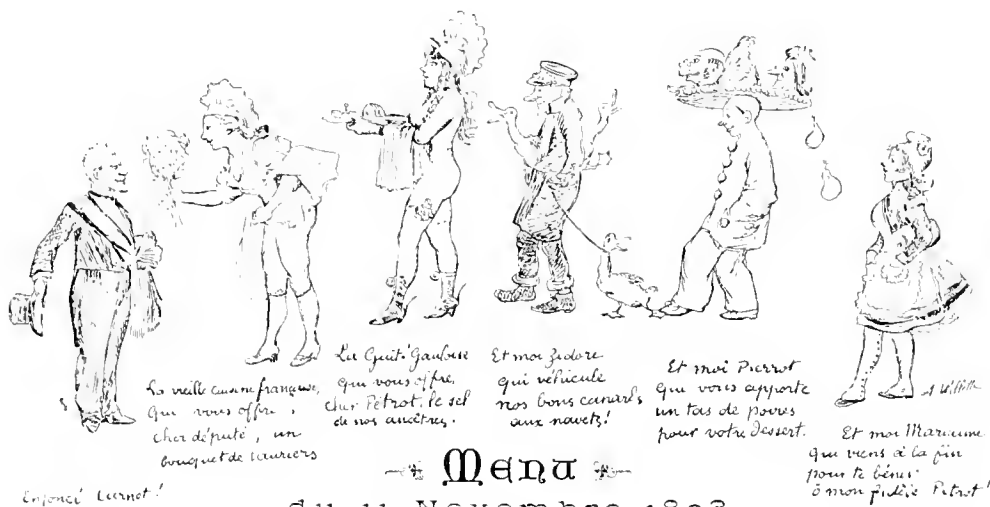 La vieille cuisine française,
qui vous offre,
cher député, un
bouquet de lauriers
La Gaité Gauloise
qui vous offre,
cher Pétrot, le sel
de nos ancêtres.
Et moi Zidore
qui véhicule
nos bons canards
aux navets!
Et moi Pierrot
qui vous apporte
un tas de poires
pour votre dessert.
Et moi Marianne
qui viens à la fin
pour te bénir
ô mon fidèle Pétrot!
Enfoncé Carnot!
A Willette
MENU
Novembre